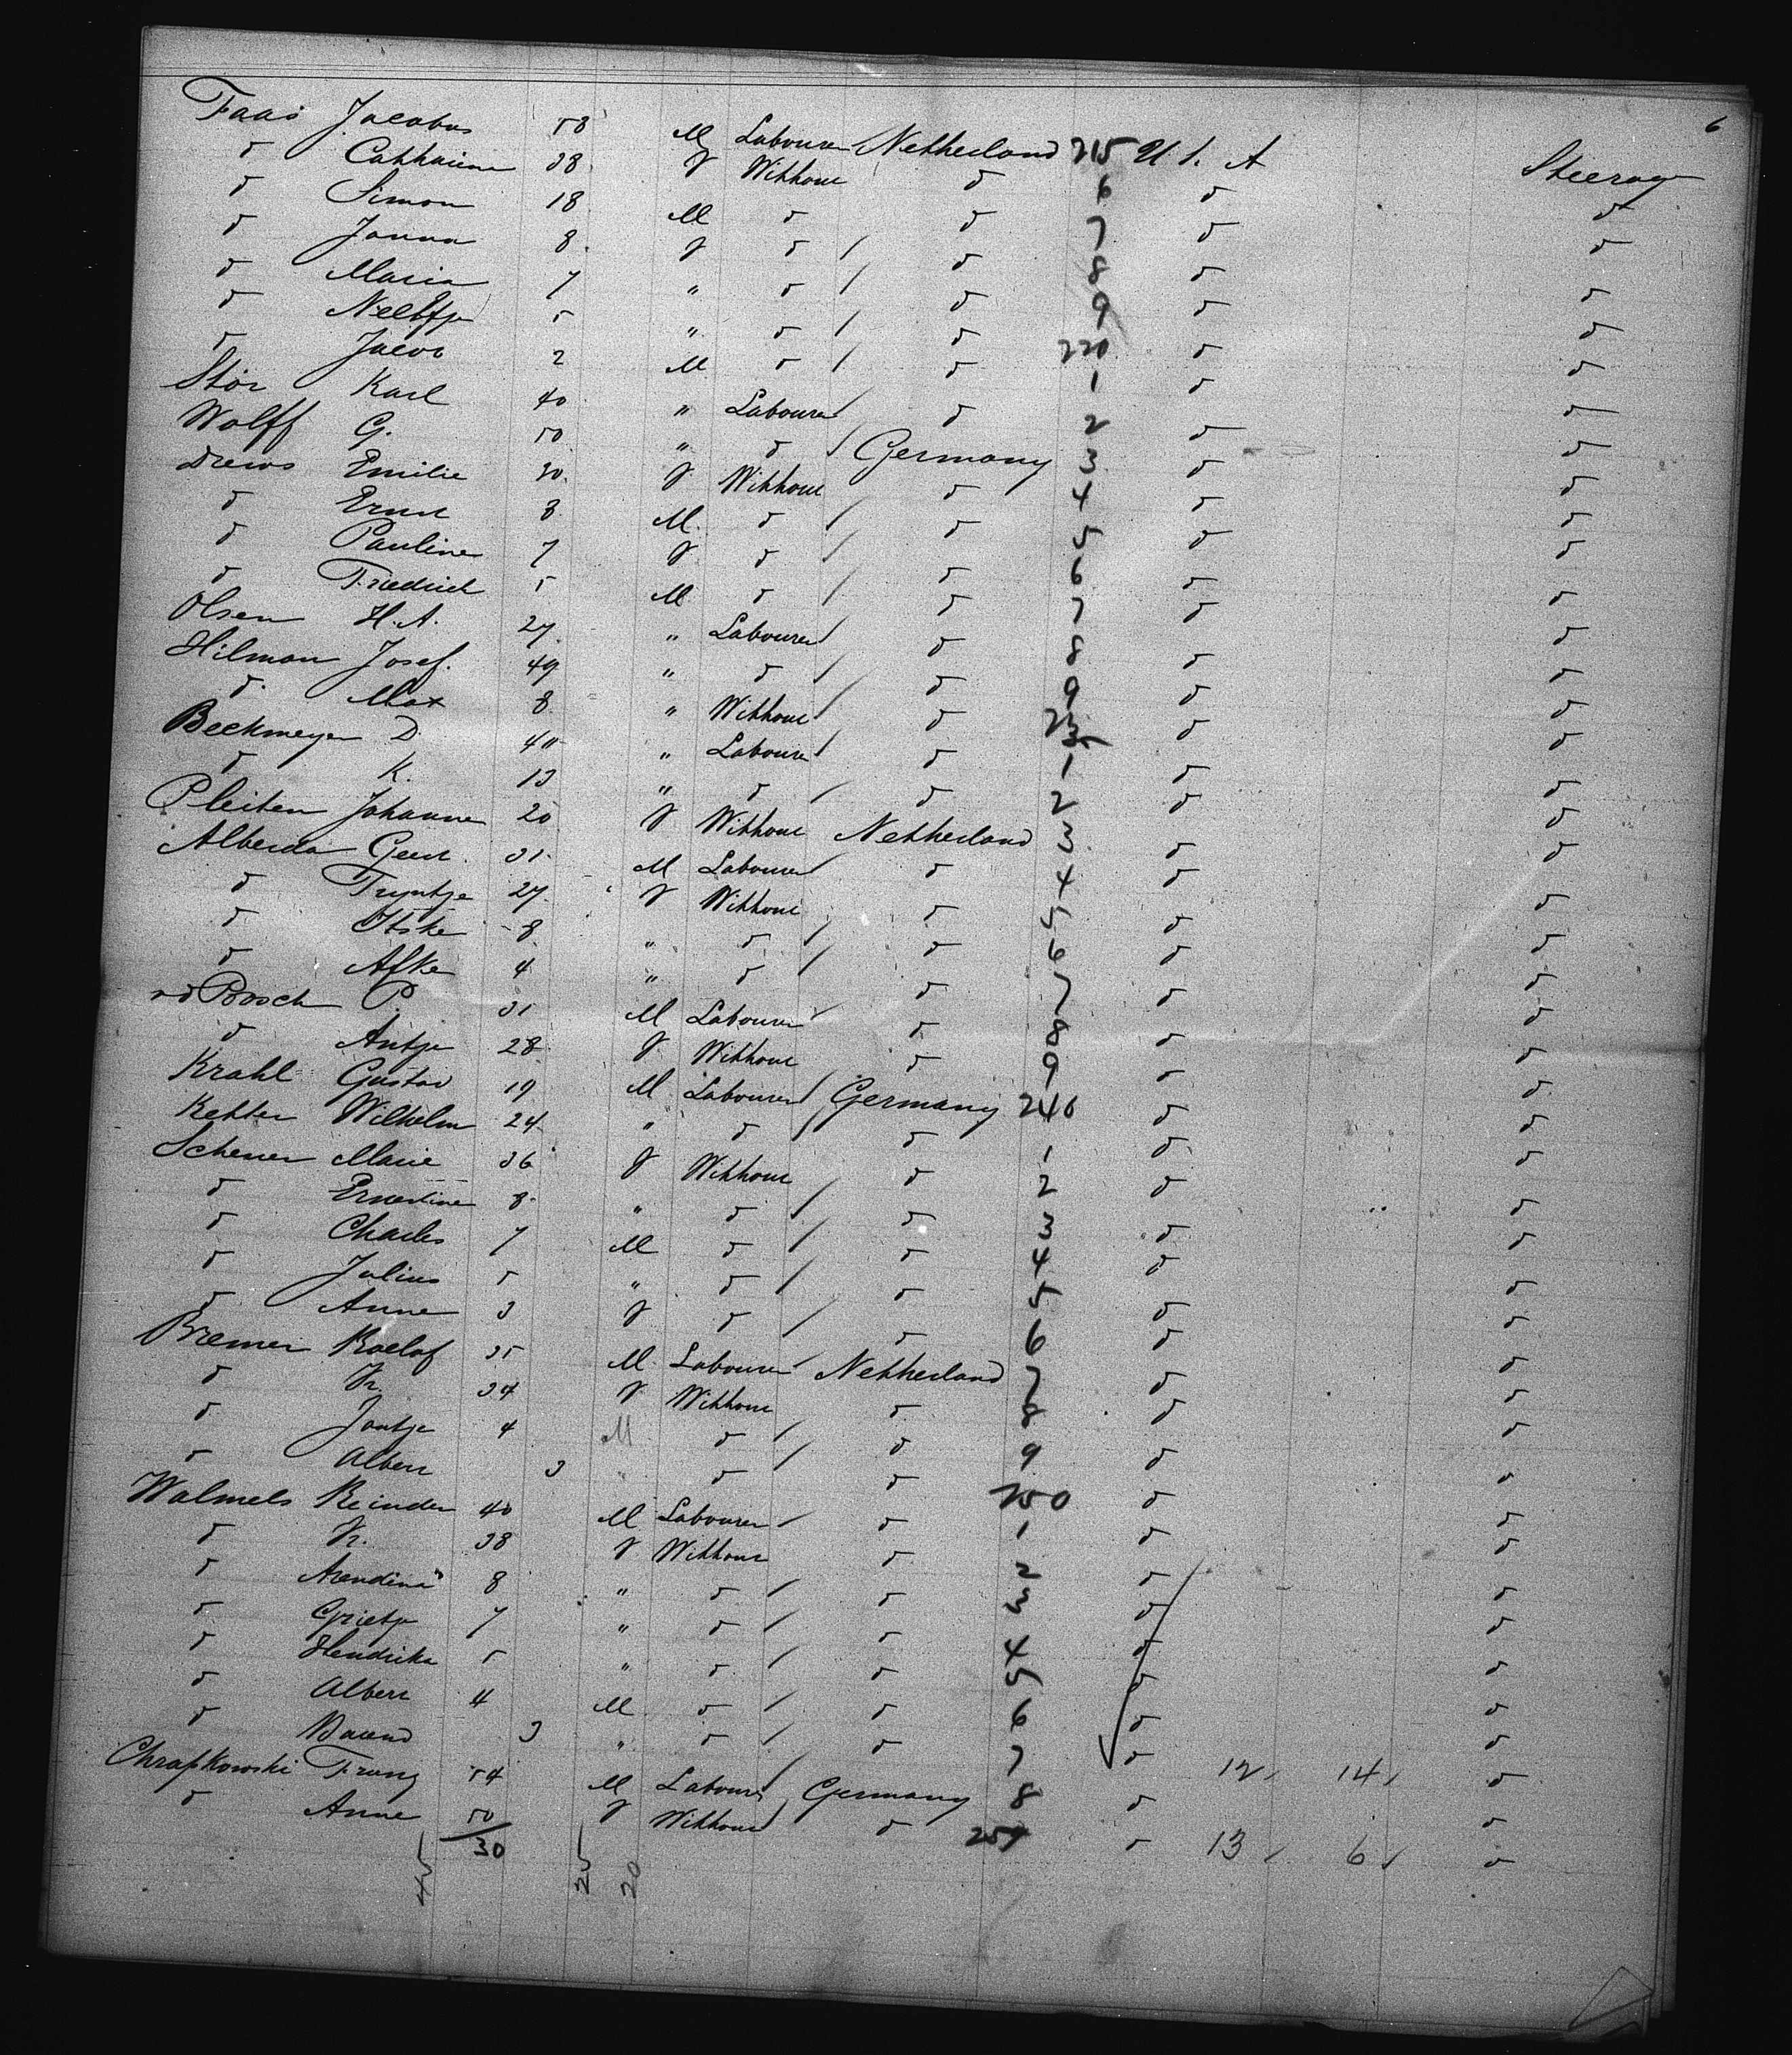 6
Faas Jacobus 58 M Labourer Netherland 215 U. S. A Steerage
d Catharina 38 V Without d 6 d d
d Simon 18 M d d 7 d d
d Janna 8 V d / d 8 d d
d Maria 7 " d / d 9 d d
d Neeltje 5 " d / d 220 d d
d Jacob 2 M d / d 1 d d
Stör Karl 40 " Labourer / d 2 d d
Wolff G. 50 " d / Germany 3 d d
Drews Emilie 30 V Without d 4 d d
d Ernst 8 M d / d 5 d d
d Pauline 7 V d / d 6 d d
d Friedrich 5 M d / d 7 d d
Olsen H. A. 27 " Labourer / d 8 d d
Hilman Josef. 49 " d / d 9 d d
d Max 8 " Without / d d d
Beekmeyer D. " Labourer / d 1 d d
d K. 13 " d / d 2 d d
Pleiten Johanne 20 V Without Netherland 3 d d
Alberda Geert 31 M Labourer / d 4 d d
d Tryntje 27 V Without d 5 d d
d Itske 8 " d / d 6 d d
d Afke 4 " d / d 7 d d
vd Bosch P. 31 M Labourer / d 8 d d
d Antje 28 V Without d 9 d d
Krahl Gustav 19 M Labourer / Germany 240 d d
Kehter Wilhelm 24 " d / d 1 d d
Scheuer Marie 36 V Without d 2 d d
d Ernestine 8 " d / d 3 d d
d Charles 7 M d / d 4 d d
d Julius 5 " d / d 5 d d
d Anne 3 V d / d 6 d d
Bremer Roelof 35 M Labourer / Netherland 7 d d
d Fr. 34 V Without d 8 d d
d Jantje 4 M d / d 9 d d
d Albert 3 " d / d 250 d d
Walmels Reinder 40 M Labourer / d 1 d d
d Fr. 38 V Without d 2 d d
d Arendina 8 " d / d 3 d d
d Grietje 7 " d / d 4 d d
d Hendrika 5 " d / d 5 d d
d Albert 4 M d / d 6 d d
d Barend 3 " d / d 7 d d
Chrapkowski Franz 54 M Labourer / Germany 8 d 12 / 14 / d
d Anne 50 V Without d 259 d 13 / 6 / d
30
45 25 20